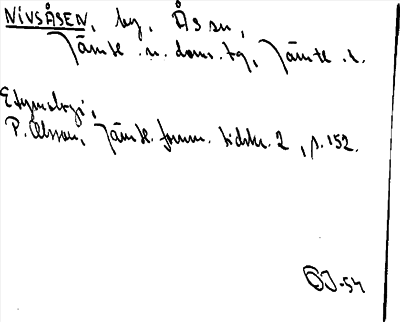 NIVSÅSEN, by, Ås sn,
Jämtl. n. doms. tg, Jämtl. l.
Etymologi,
P. Olsson, Jämtl. fornm. tidskr. 2, s. 152.
OJ-54